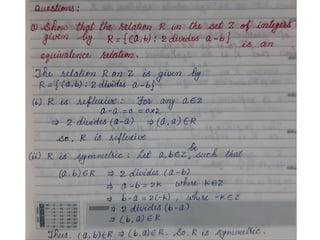 Questions:
(i) Show that the relation R in the set Z of integers
given by R = {(a,b) : 2 divides a-b} is an
equivalence relation.
The relation R on Z is given by
R = {(a,b) : 2 divides a-b}
(i) R is reflexive: For any a∈Z
a-a = 0 = 0×2
⇒ 2 divides (a-a) ⇒ (a,a)∈R
So, R is reflexive
(ii) R is symmetric: Let a,b∈Z be such that
(a,b)∈R ⇒ 2 divides (a-b)
⇒ a-b = 2k where k∈Z
⇒ b-a = 2(-k), where -k∈Z
⇒ 2 divides (b-a)
⇒ (b,a)∈R
Thus, (a,b)∈R ⇒ (b,a)∈R. So R is symmetric.